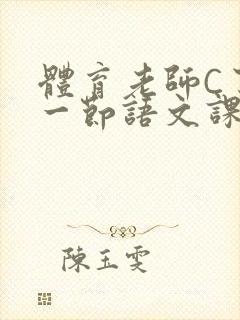 體育老師C
一節語文課
陳玉雯